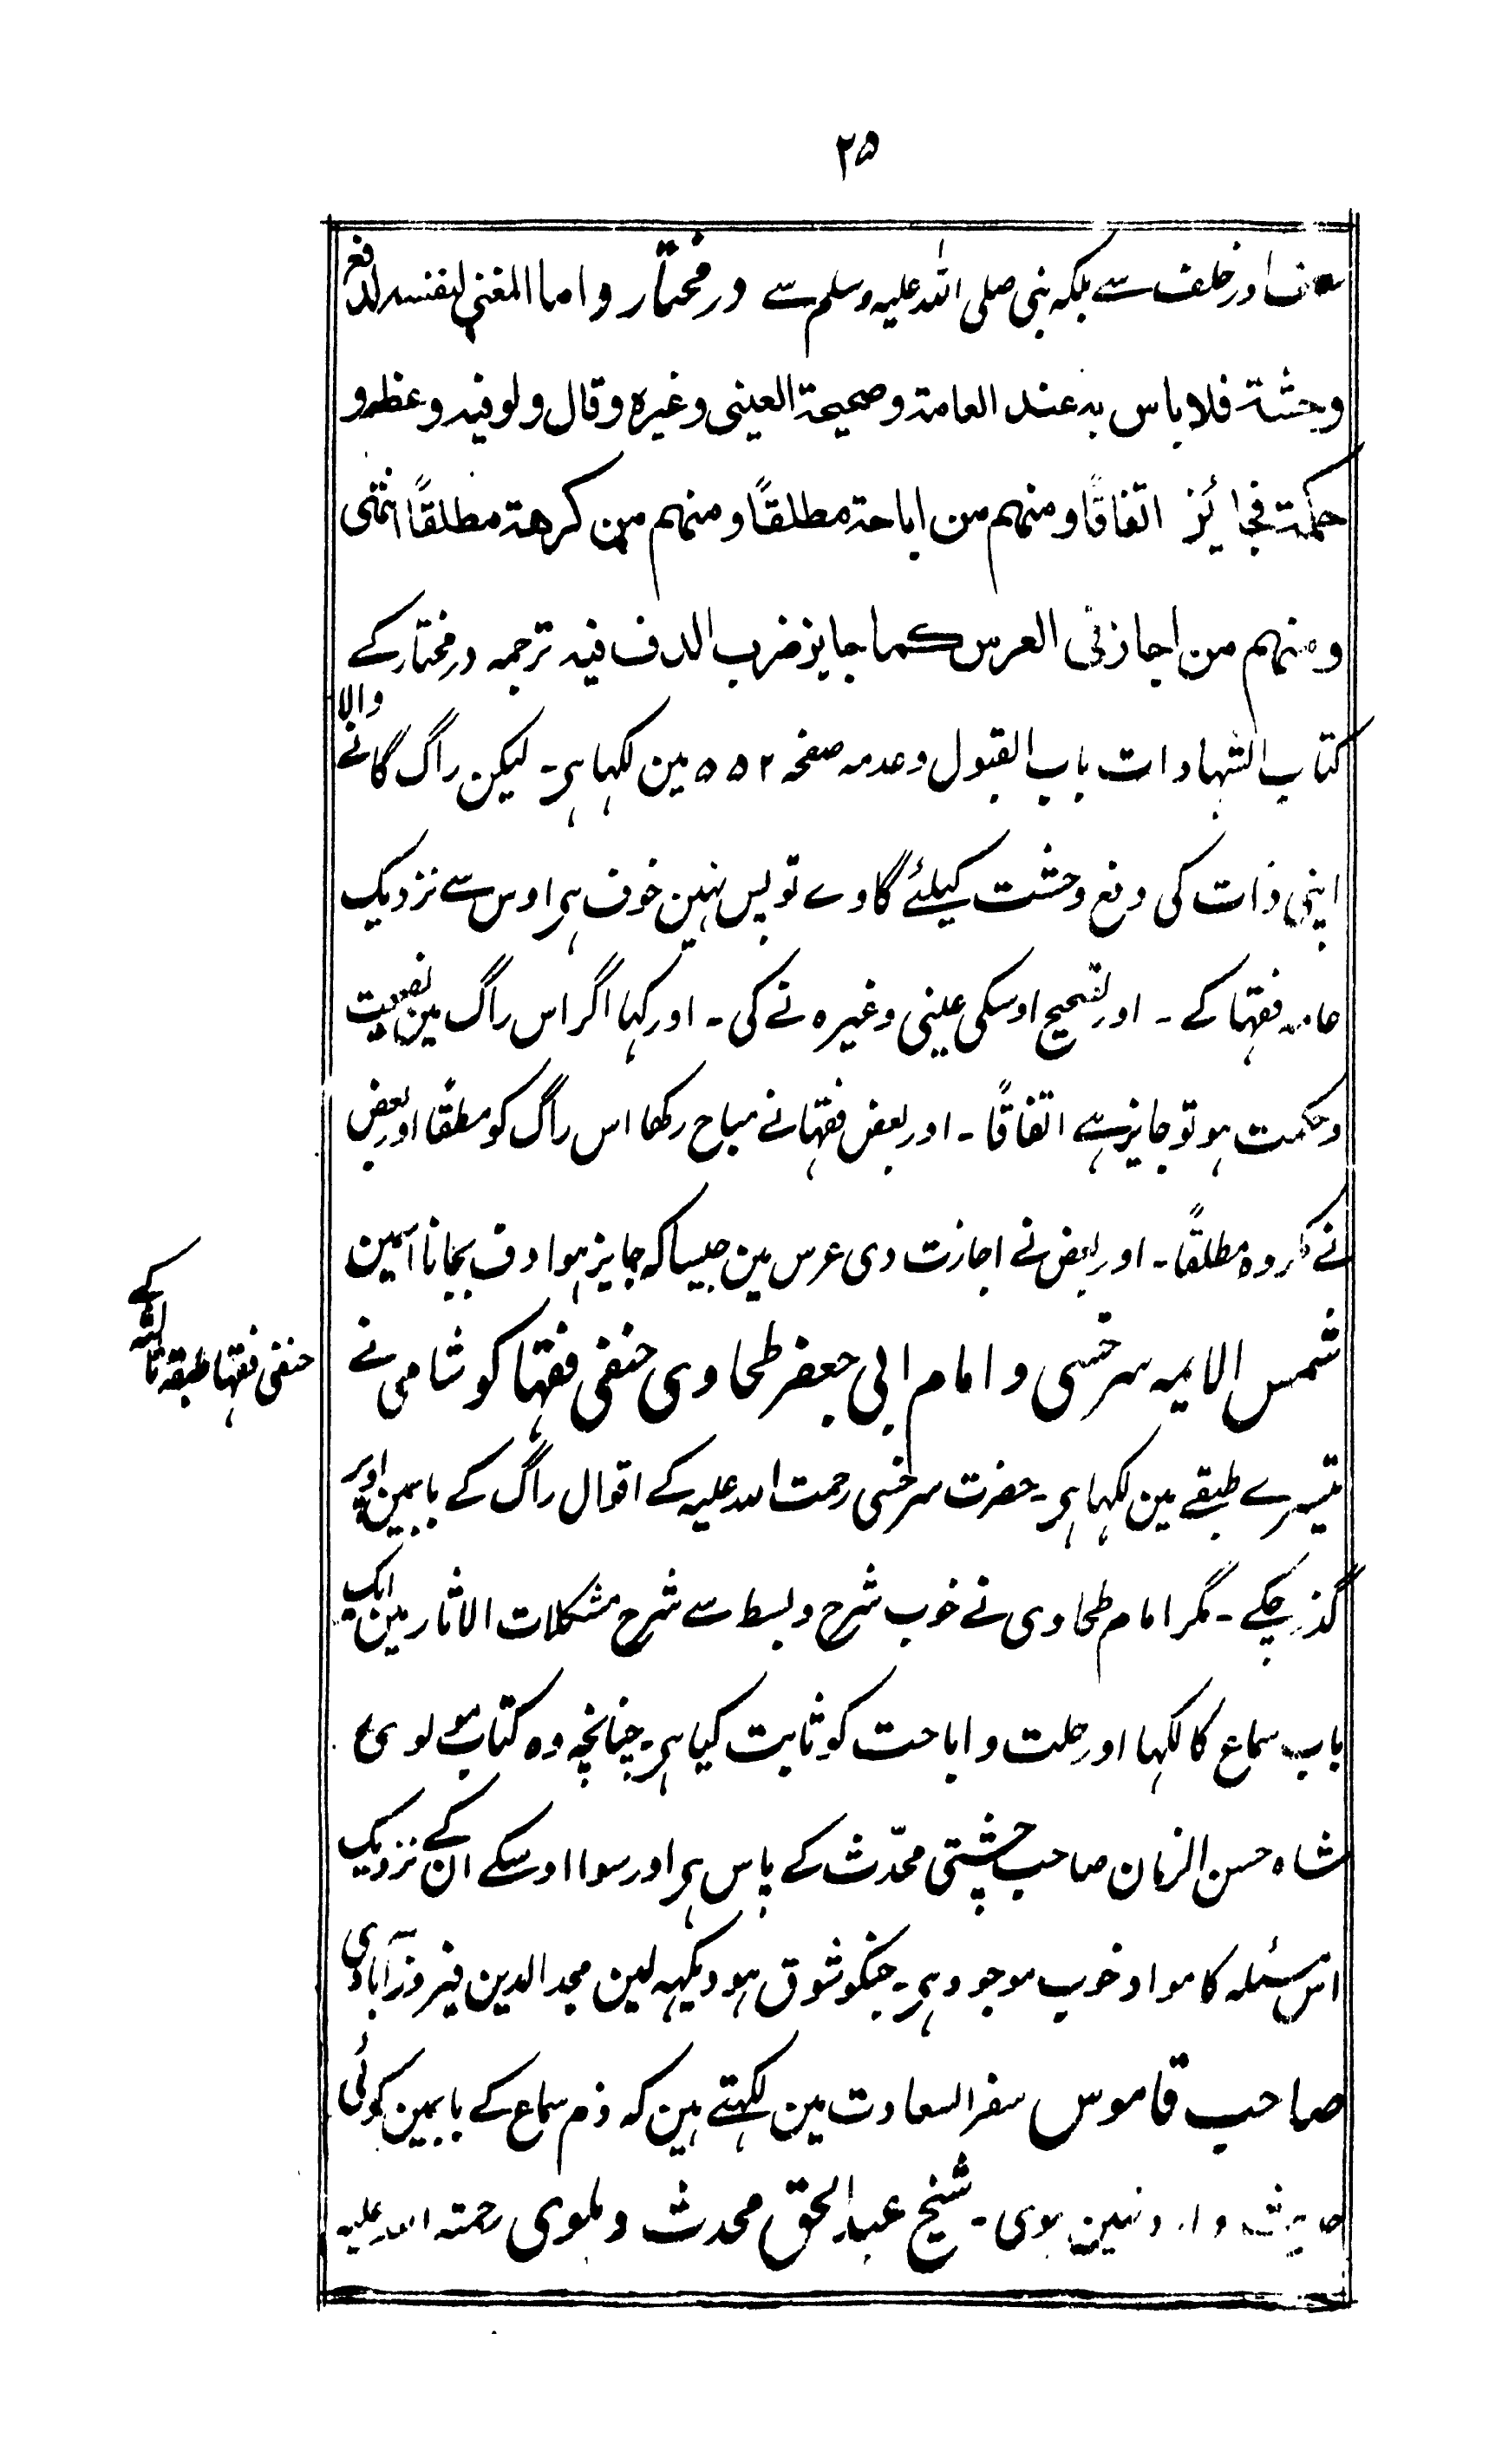 ۲۵
سلف اور خلف سے بلکہ نبی صلی اللہ علیہ وسلم سے درمختار واما المغنی لنفسہ لدفع
وحشة فلا باس بہ عند العامة وصححة العینی وغیرہ وقال ولو فیہ وعظ و
حکمة فجائز اتفاقًا ومنہم من اباحة مطلقًا ومنہم من کرھة مطلقًا انتہی
ومنہم من اجاز فی العرس کما جایز ضرب الدف فیہ ترجمہ درمختار کے
کتاب الشہادات باب القبول وعدمہ صفحہ ۵۵۲ مین لکہا ہی۔ لیکن راگ گانے والا
اپنی ذات کی دفع وحشت کیلئے گاوے تو پس نہین خوف ہی اوس سے نزدیک
عامہ فقہا کے ۔ اور تصحیح اوسکی عینی وغیرہ نے کی ۔ اور کہا اگر اس راگ مین نصیحت
وحکمت ہو تو جایز ہے اتفاقًا ۔ اور بعض فقہا نے مباح رکہا اس راگ کو مطلقًا اور بعض
نے مکروہ مطلقًا ۔ اور بعض نے اجازت دی عرس مین جیسا کہ جایز ہوا دف بجانا اسمین
شمس الایمہ سرخسی و امام ابی جعفر طحاوی حنفی فقہا کو شامی نے
حنفی فقہا طبقہ ثالثہ کے
تیسرے طبقے مین لکہا ہی۔ حضرت سرخسی رحمت اللہ علیہ کے اقوال راگ کے بابمین اوپر
گذر چکے ۔ مگر امام طحاوی نے خوب شرح وبسط سے شرح مشکلات الاثار مین ایک
باب سماع کا لکہا اور حلت و اباحت کو ثابت کیا ہی۔ چنانچہ وہ کتاب مولوی
شاہ حسن الزمان صاحب چشتی محدّث کے پاس ہی اور سوا اوسکے ان کے نزدیک
اس مسئلہ کا مواد خوب موجود ہی۔ جنکو شوق ہو دیکہہ لین مجد الدین فیروز آبادی
صاحب قاموس سفر السعادت مین لکہتے ہین کہ ذم سماع کے بابمین کوئی
حدیث وارد نہین ہوی ۔ شیخ عبد الحق محدث دہلوی رحمتہ اللہ علیہ